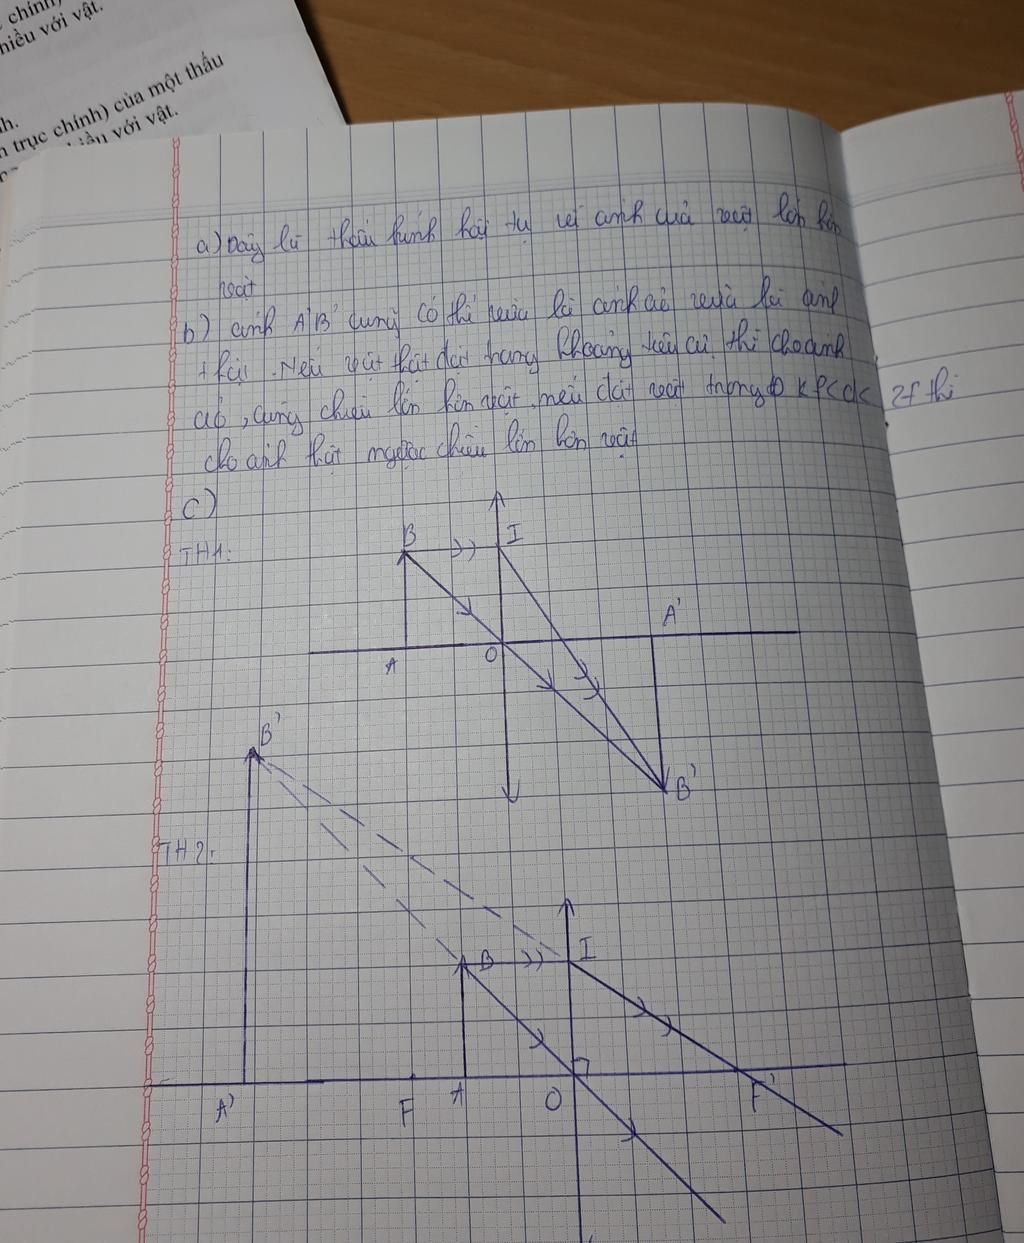 chính)
hiều với vật.
h.
trục chính) của một thấu
với vật.
a) Đây là thấu kính hội tụ vì ảnh của vật lớn hơn
vật
b) ảnh A'B' cũng có thể vừa là ảnh ảo vừa là ảnh
thật. Nếu vật thật đặt trong khoảng tiêu cự thì cho ảnh
ảo, cùng chiều lớn hơn vật, nếu đặt vật trong f<d< 2f thì
cho ảnh thật ngược chiều lớn hơn vật
c)
TH1:
B I
A'
A O
B'
B'
TH2:
B I
A' F A O F'